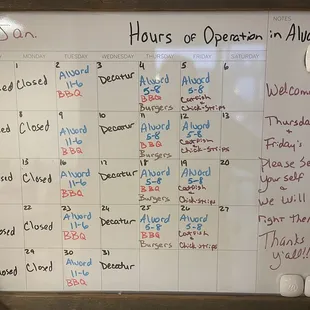 Jan. Hours of Operation in Alvo
NOTES
MONDAY TUESDAY WEDNESDAY THURSDAY FRIDAY SATURDAY
2 3 4 5 6
sed Closed Alvord Decatur Alvord Alvord
11-6 5-8 5-8
BBQ BBQ Catfish
Burgers & Chick-Strips
8 9 10 11 12 13
sed Closed Alvord Decatur Alvord Alvord
11-6 5-8 5-8
BBQ BBQ Catfish
Burgers & Chick-strips
15 16 17 18 19 20
sed Closed Alvord Decatur Alvord Alvord
11-6 5-8 5-8
BBQ BBQ Catfish
Burgers & Chick-strips
22 23 24 25 26 27
osed Closed Alvord Decatur Alvord Alvord
11-6 5-8 5-8
BBQ BBQ Catfish &
Burgers Chick-strips
29 30 31
osed Closd Alvord Decatur
11-6
BBQ
Welcome
Thursda
+
Friday's
Please Se
yourself
&
We Will
right ther
Thanks
y'all!!